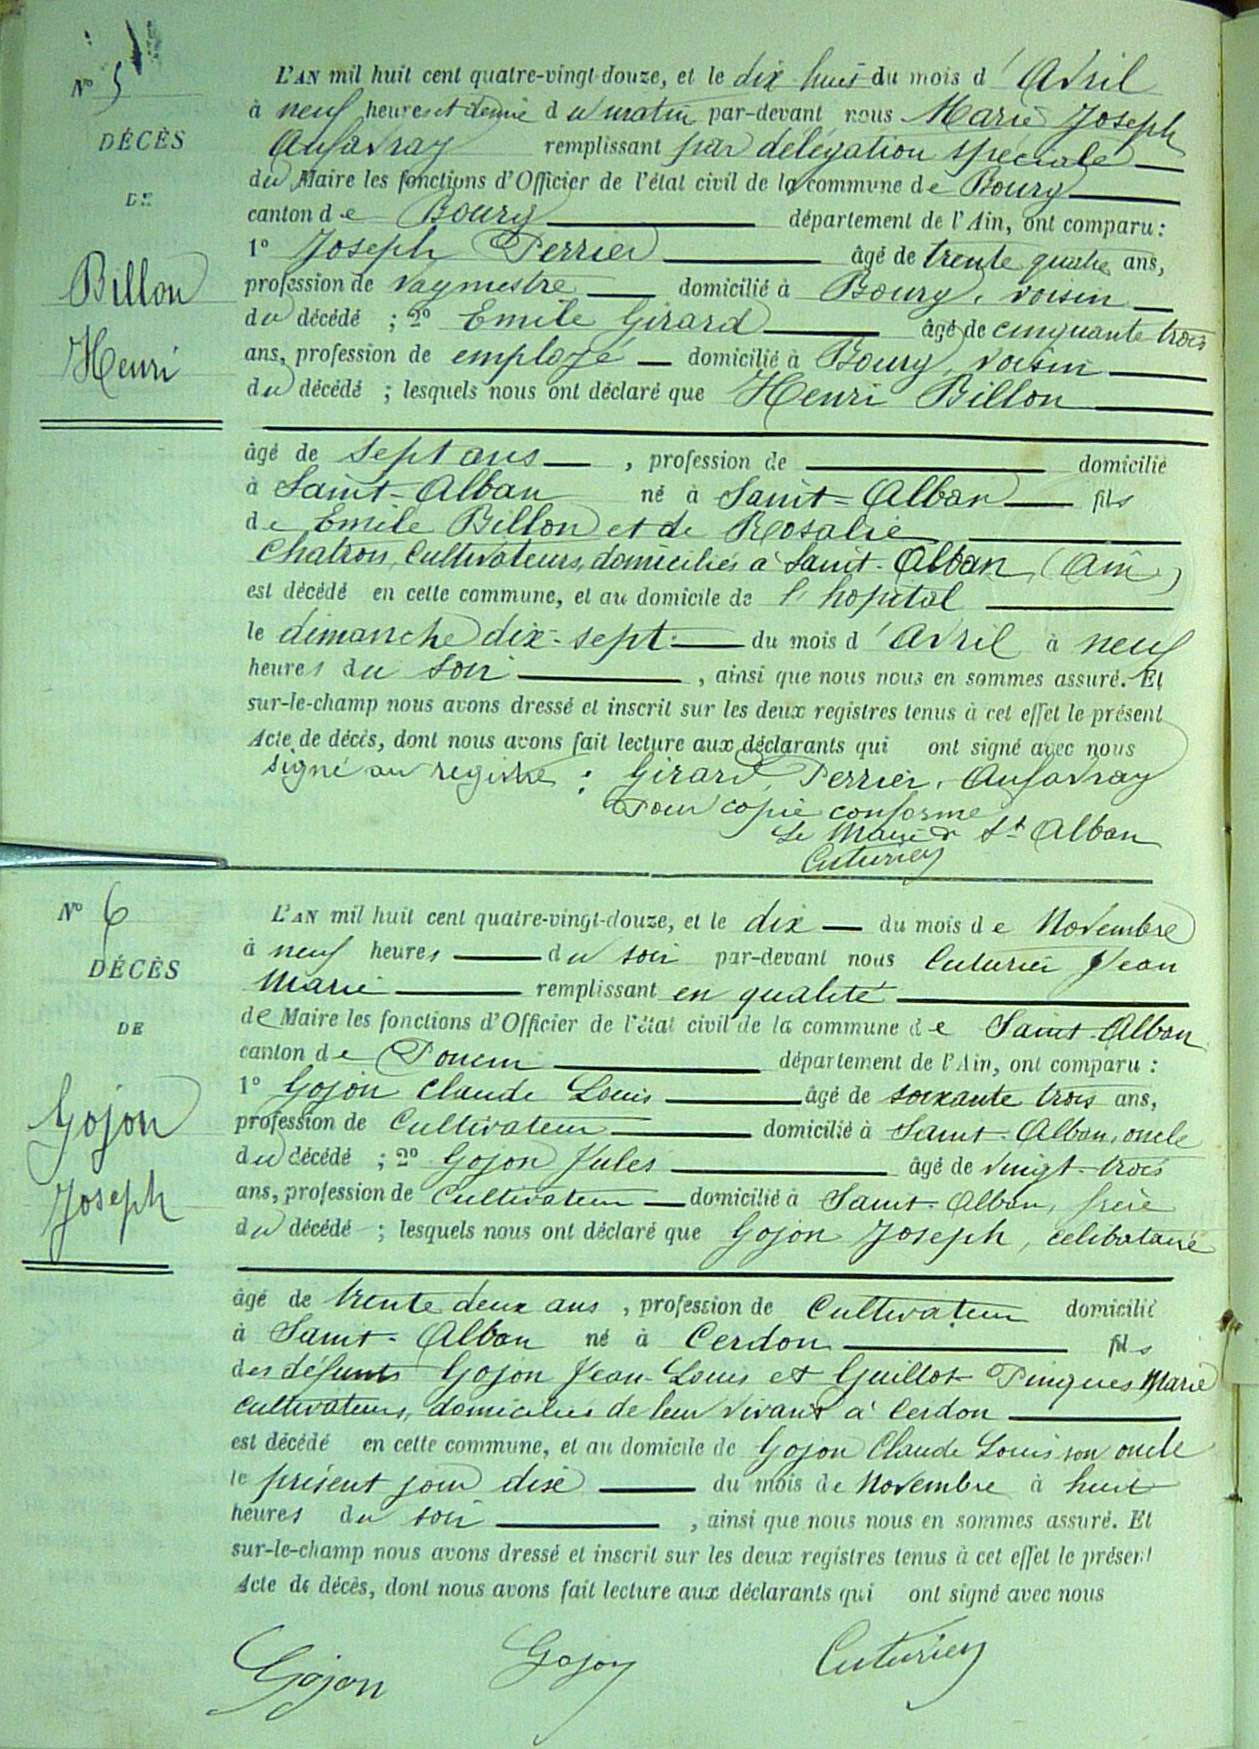 N° 5
DÉCÈS
DE
Billon
Henri
L'AN mil huit cent quatre-vingt-douze, et le dix huit du mois d'Avril
à neuf heures et demie du matin par-devant nous Marie Joseph
Aufavray remplissant par délégation spéciale
du Maire les fonctions d'Officier de l'état civil de la commune de Bourg
canton de Bourg département de l'Ain, ont comparu :
1° Joseph Perrier âgé de trente quatre ans,
profession de vagmestre domicilié à Bourg, voisin
du décédé ; 2° Emile Girard âgé de cinquante trois
ans, profession de employé domicilié à Bourg, voisin
du décédé ; lesquels nous ont déclaré que Henri Billon
âgé de sept ans , profession de domicilié
à Saint-Alban né à Saint-Alban fils
de Emile Billon et de Rosalie
Chatron, Cultivateurs, domiciliés à Saint-Alban, (Ain)
est décédé en cette commune, et au domicile de l'hopital
le dimanche dix-sept du mois d'Avril à neuf
heures du soir , ainsi que nous nous en sommes assuré. Et
sur-le-champ nous avons dressé et inscrit sur les deux registres tenus à cet effet le présent
Acte de décès, dont nous avons fait lecture aux déclarants qui ont signé avec nous
signé au registre : Girard, Perrier, Aufavray
Pour copie conforme
Le Maire de St Alban
Cuturier
N° 6
DÉCÈS
DE
Gojon
Joseph
L'AN mil huit cent quatre-vingt-douze, et le dix du mois de Novembre
à neuf heures du soir par-devant nous Cuturier Jean
Marie remplissant en qualité
de Maire les fonctions d'Officier de l'état civil de la commune de Saint-Alban
canton de Poncin département de l'Ain, ont comparu :
1° Gojon Claude Louis âgé de soixante trois ans,
profession de Cultivateur domicilié à Saint-Alban, oncle
du décédé ; 2° Gojon Jules âgé de vingt-trois
ans, profession de Cultivateur domicilié à Saint-Alban, frère
du décédé ; lesquels nous ont déclaré que Gojon Joseph, célibataire
âgé de trente deux ans , profession de Cultivateur domicilié
à Saint-Alban né à Cerdon fils
des défunts Gojon Jean-Louis et Guillot-Pingues Marie
cultivateurs, domiciliés de leur vivant à Cerdon
est décédé en cette commune, et au domicile de Gojon Claude Louis son oncle
le présent jour dix du mois de Novembre à huit
heures du soir , ainsi que nous nous en sommes assuré. Et
sur-le-champ nous avons dressé et inscrit sur les deux registres tenus à cet effet le présent
Acte de décès, dont nous avons fait lecture aux déclarants qui ont signé avec nous
Gojon Gojon Cuturier